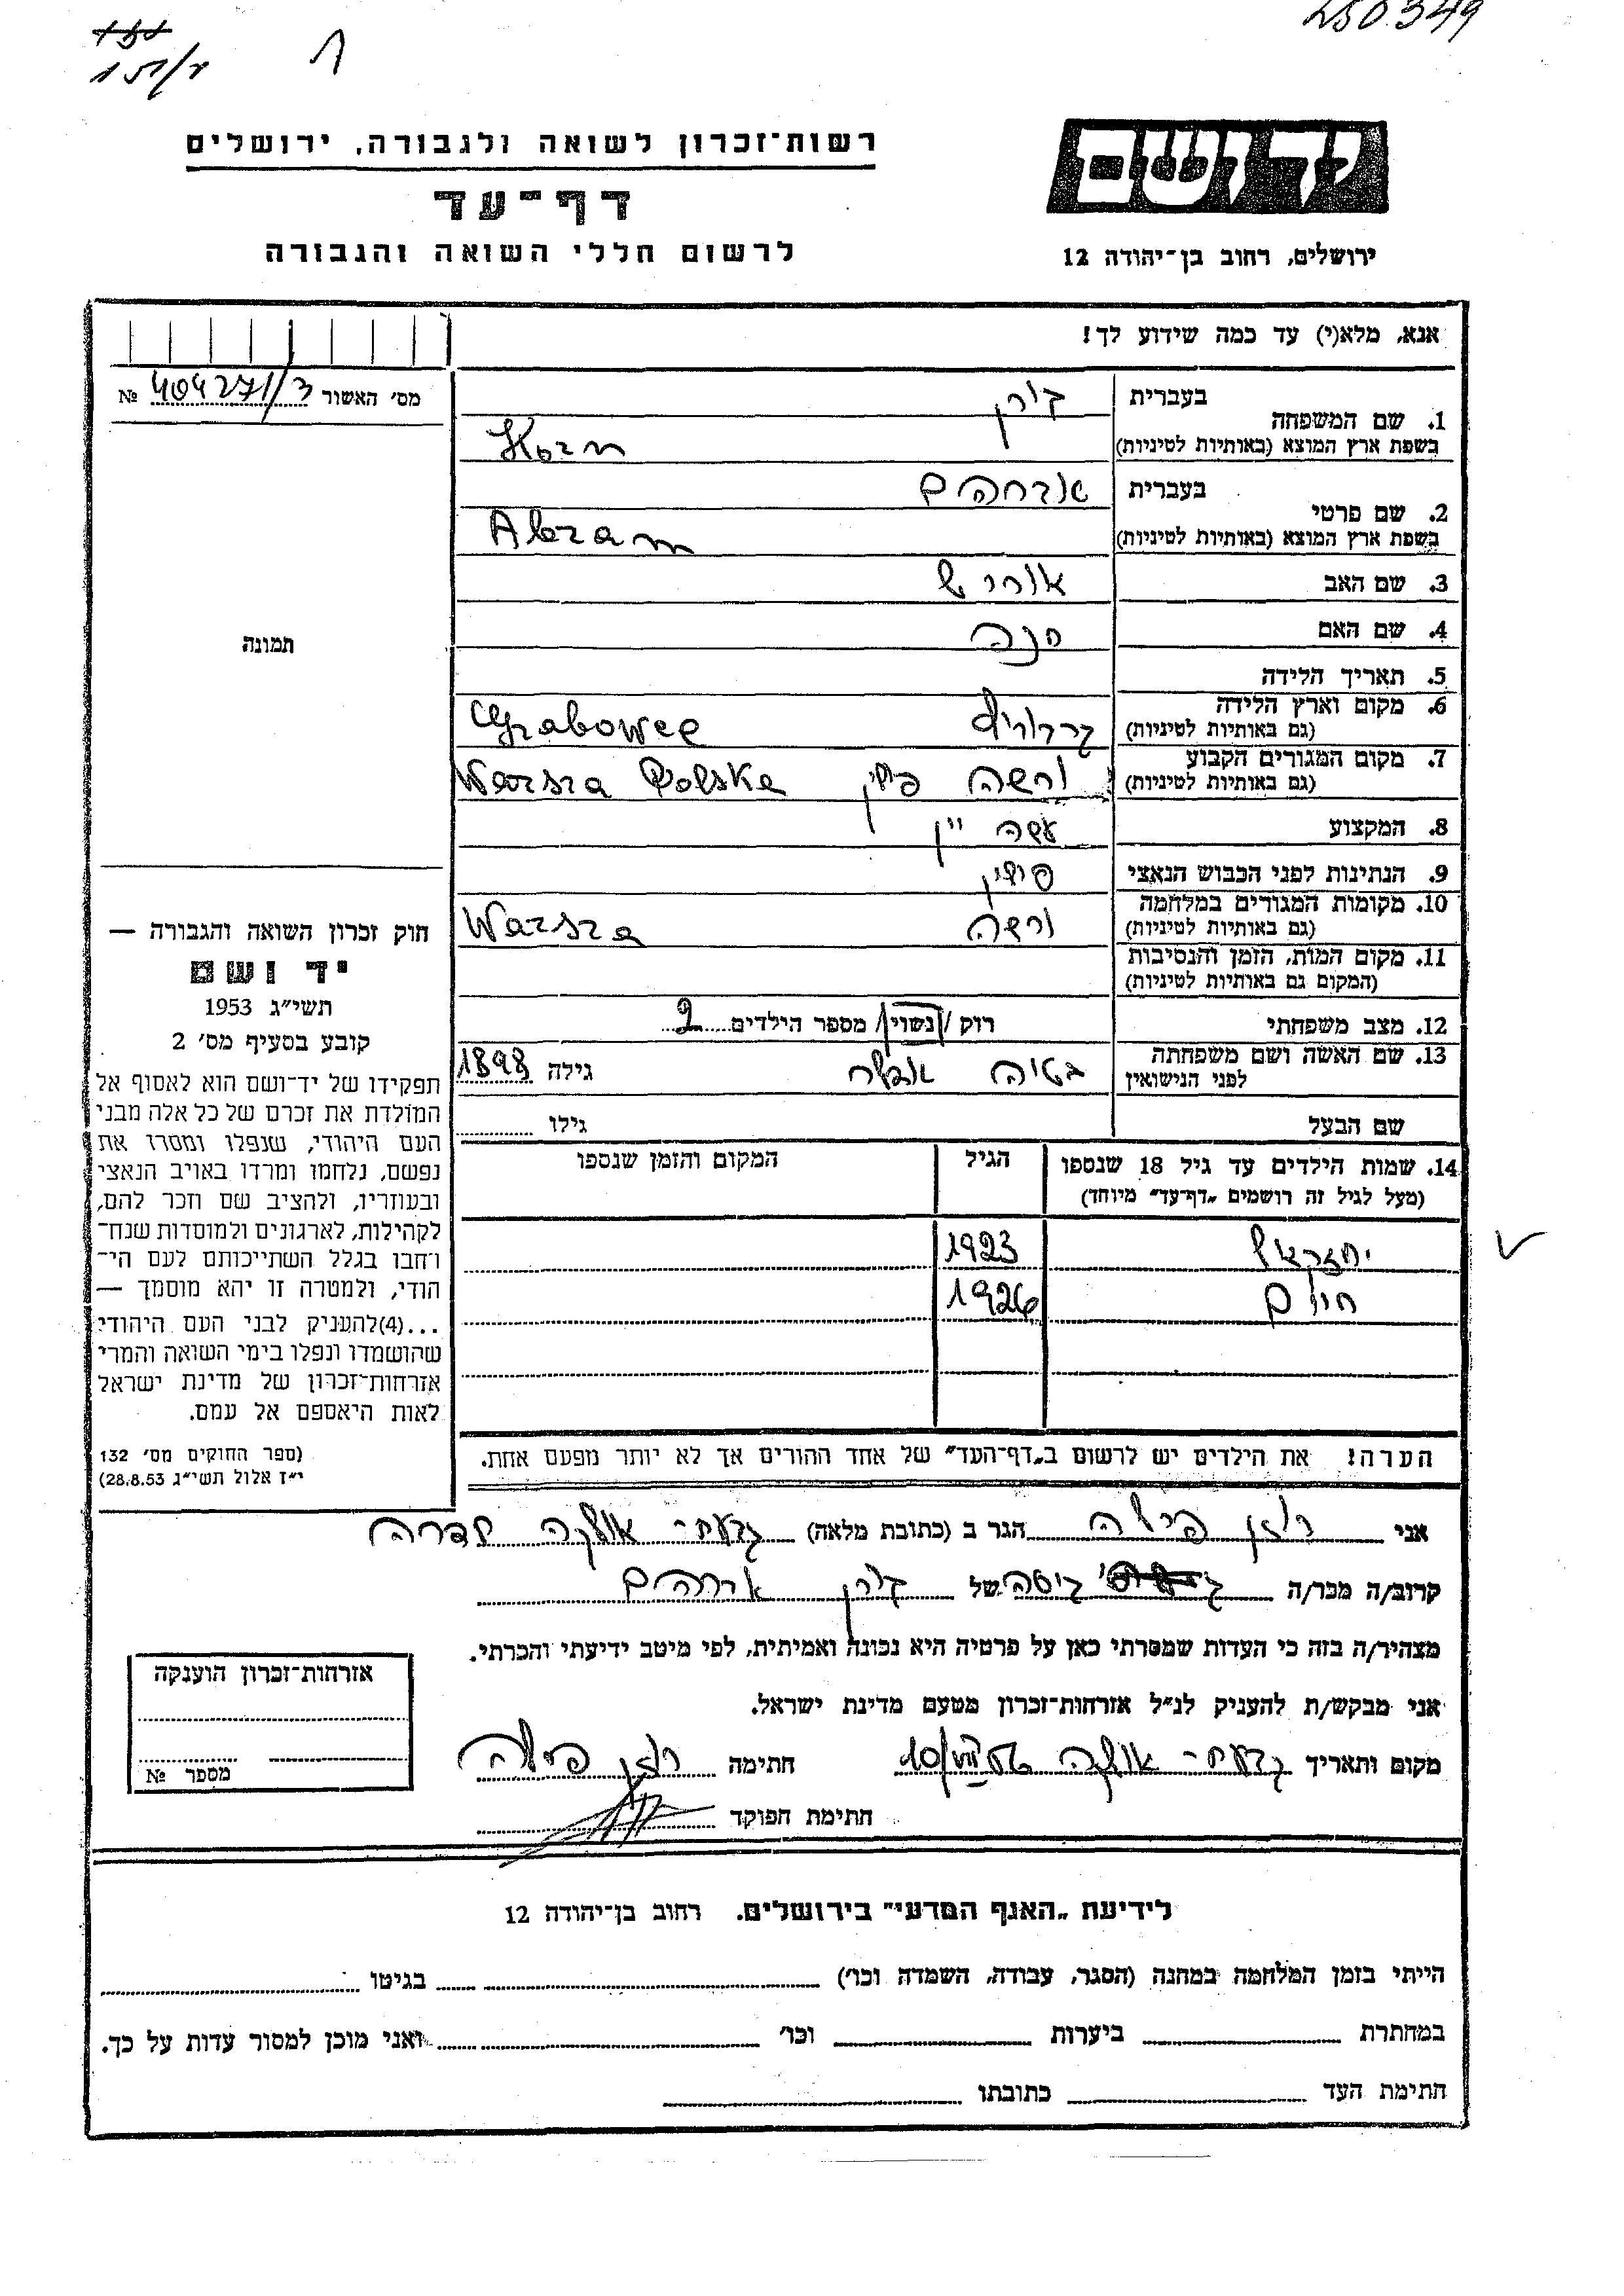 250.349
151/2
יד ושם
ירושלים, רחוב בן־יהודה 12
רשות־זכרון לשואה ולגבורה, ירושלים
דף־עד
לרשום חללי השואה והגבורה
אנא, מלא(י) עד כמה שידוע לך!
מס' האשור № 404271/3
1. שם המשפחה
בעברית קורן
בשפת ארץ המוצא (באותיות לטיניות) Korn
2. שם פרטי
בעברית אברהם
בשפת ארץ המוצא (באותיות לטיניות) Abram
3. שם האב
4. שם האם חנה
5. תאריך הלידה
6. מקום וארץ הלידה
(גם באותיות לטיניות) Grabowee
7. מקום המגורים הקבוע
(גם באותיות לטיניות) ורשה פולין Warsza Polska
8. המקצוע
9. הנתינות לפני הכבוש הנאצי פולין
10. מקומות המגורים במלחמה
(גם באותיות לטיניות) ורשה Warsza
11. מקום המות, הזמן והנסיבות
(המקום גם באותיות לטיניות)
12. מצב משפחתי רוק /נשוי/ מספר הילדים 2
13. שם האשה ושם משפחתה
לפני הנישואין גילה 1898
שם הבעל גילו
14. שמות הילדים עד גיל 18 שנספו
(מעל לגיל זה רושמים „דף־עד” מיוחד)
הגיל
המקום והזמן שנספו
יחזקאל 1923
חיים 1926
הערה! את הילדים יש לרשום ב„דף־העד” של אחד ההורים אך לא יותר מפעם אחת.
תמונה
חוק זכרון השואה והגבורה —
יד ושם
תשי״ג 1953
קובע בסעיף מס' 2
תפקידו של יד־ושם הוא לאסוף אל
המולדת את זכרם של כל אלה מבני
העם היהודי, שנפלו ומסרו את
נפשם, נלחמו ומרדו באויב הנאצי
ובעוזריו, ולהציב שם וזכר להם,
לקהילות, לארגונים ולמוסדות שנח־
רחבו בגלל השתייכותם לעם הי־
הודי, ולמטרה זו יהא מוסמך —
...(4)להעניק לבני העם היהודי
שהושמדו ונפלו בימי השואה והמרי
אזרחות־זכרון של מדינת ישראל
לאות היאספם אל עמם.
(ספר החוקים מס' 132
י״ז אלול תשי״ג 28.8.53)
אני הגר ב (כתובת מלאה)
קרוב/ה מכר/ה של קורן אברהם
מצהיר/ה בזה כי העדות שמסרתי כאן על פרטיה היא נכונה ואמיתית, לפי מיטב ידיעתי והכרתי.
אני מבקש/ת להעניק לנ״ל אזרחות־זכרון מטעם מדינת ישראל.
מקום ותאריך חתימה
חתימת הפוקד
אזרחות־זכרון הוענקה
מספר №
לידיעת „האגף המדעי” בירושלים. רחוב בן־יהודה 12
הייתי בזמן המלחמה במחנה (הסגר, עבודה, השמדה וכו') בגיטו
במחתרת ביערות וכו' ואני מוכן למסור עדות על כך.
חתימת העד כתובתו